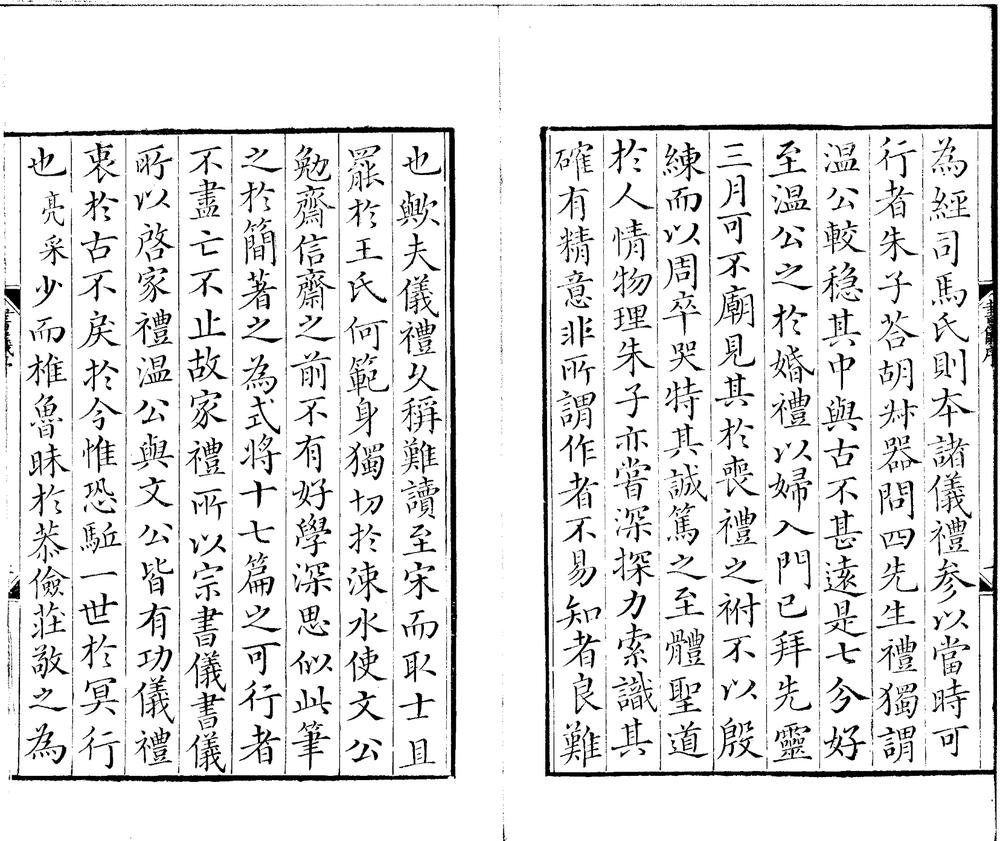 為經司馬氏則本諸儀禮參以當時可
行者朱子荅胡叔器問四先生禮獨謂
温公較穏其中與古不甚遠是七分好
至温公之於婚禮以婦入門已拜先靈
三月可不廟見其於喪禮之祔不以殷
練而以周卒哭特其誠篤之至體聖道
於人情物理朱子亦嘗深探力索識其
確有精意非所謂作者不易知者良難
也歟夫儀禮久稱難讀至宋而取士且
罷於王氏何範身獨切於涑水使文公
勉齋信齋之前不有好學深思似此筆
之於簡著之為式將十七篇之可行者
不盡亡不止故家禮所以宗書儀書儀
所以啓家禮温公與文公皆有功儀禮
衷於古不戾於今惟恐駈一世於冥行
也亮采少而椎魯昧於恭儉莊敬之為